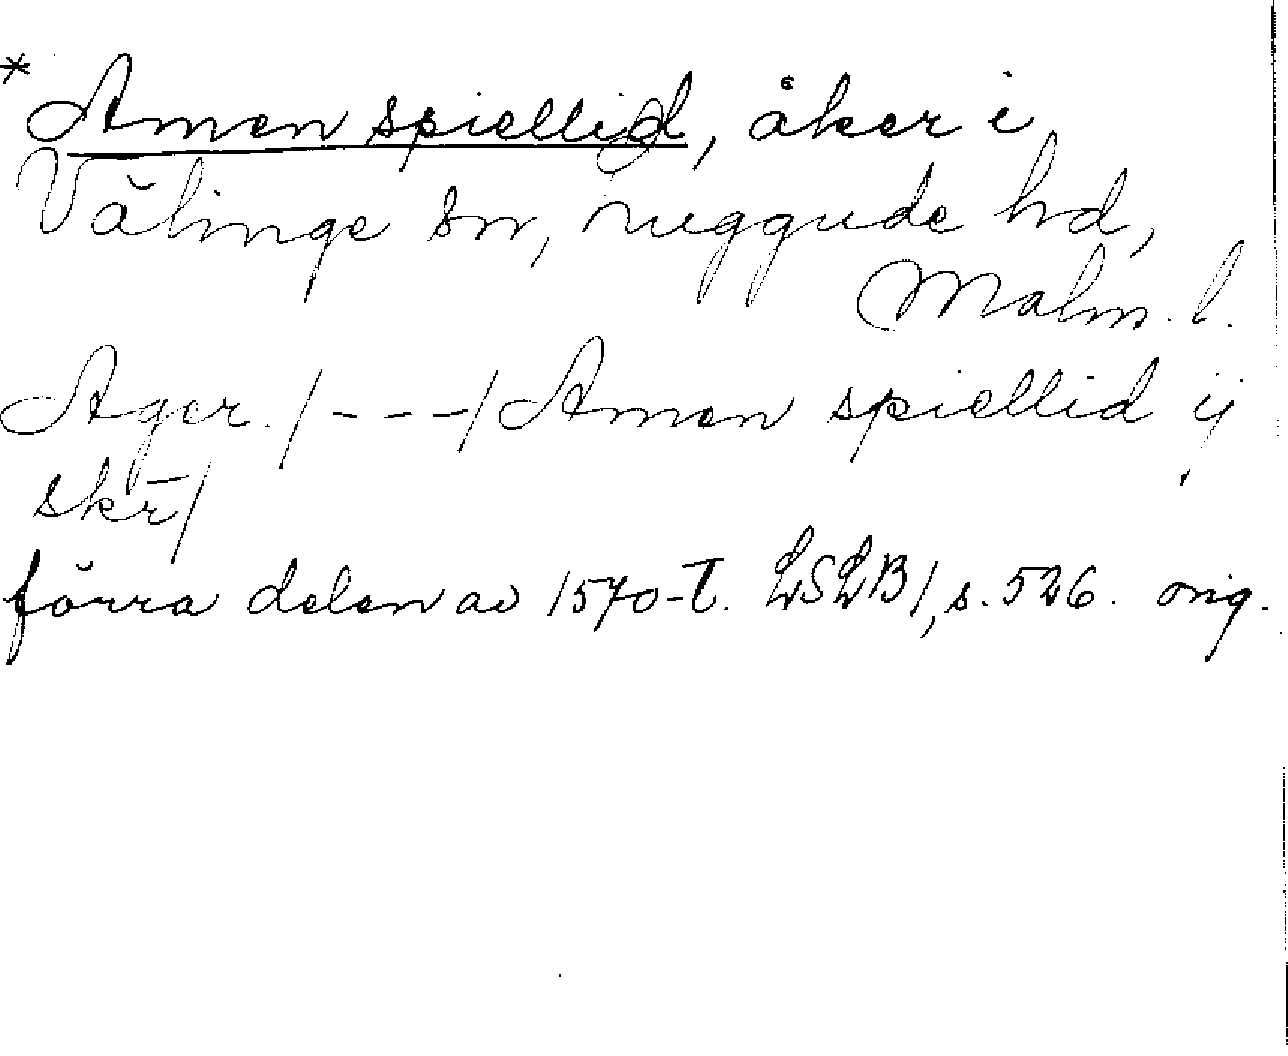 * Amen spiellid, åker i
Välinge sn, Luggude hd,
Malm. l.
Ager. /---/ Amen spiellid ij
skr̄/
förra delen av 1570-t. LSLB 1, s. 526. orig.